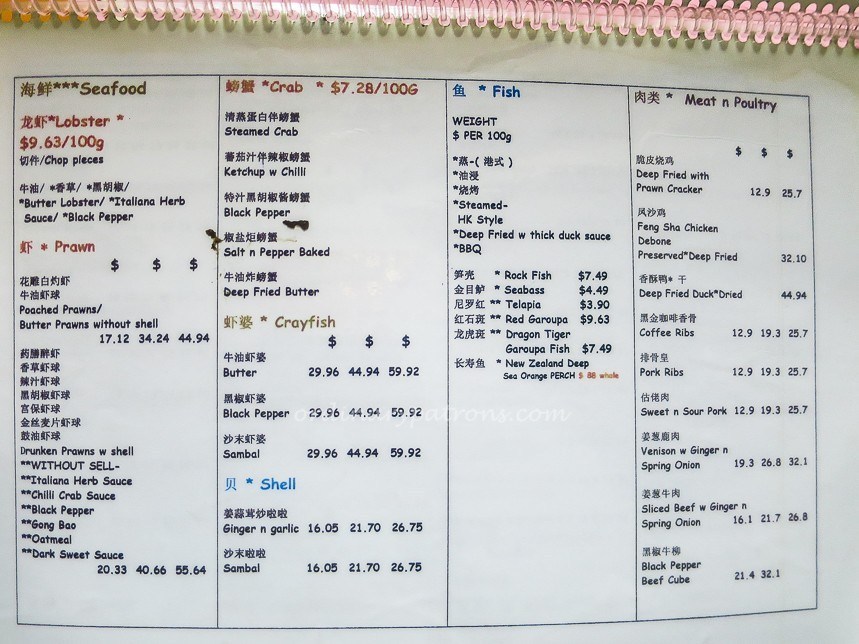 海鲜***Seafood
龙虾*Lobster *
$9.63/100g
切件/Chop pieces
牛油/ *香草/ *黑胡椒/
*Butter Lobster/ *Italiana Herb
Sauce/ *Black Pepper
虾 * Prawn
$ $ $
花雕白灼虾
牛油虾球
Poached Prawns/
Butter Prawns without shell
17.12 34.24 44.94
药膳醉虾
香草虾球
辣汁虾球
黑胡椒虾球
宫保虾球
金丝麦片虾球
豉油虾球
Drunken Prawns w shell
**WITHOUT SELL-
*Italiana Herb Sauce
**Chilli Crab Sauce
**Black Pepper
**Gong Bao
**Oatmeal
**Dark Sweet Sauce
20.33 40.66 55.64
螃蟹 *Crab * $7.28/100G
清蒸蛋白伴螃蟹
Steamed Crab
蕃茄汁伴辣椒螃蟹
Ketchup w Chilli
特汁黑胡椒酱螃蟹
Black Pepper
椒盐炬螃蟹
Salt n Pepper Baked
牛油炸螃蟹
Deep Fried Butter
虾婆 * Crayfish
$ $ $
牛油虾婆
Butter 29.96 44.94 59.92
黑椒虾婆
Black Pepper 29.96 44.94 59.92
沙末虾婆
Sambal 29.96 44.94 59.92
贝 * Shell
姜蒜茸炒啦啦
Ginger n garlic 16.05 21.70 26.75
沙末啦啦
Sambal 16.05 21.70 26.75
鱼 * Fish
WEIGHT
$ PER 100g
*蒸-( 港式 )
*油浸
*烧烤
*Steamed-
HK Style
*Deep Fried w thick duck sauce
*BBQ
笋壳 * Rock Fish $7.49
金目鲈 * Seabass $4.49
尼罗红 ** Telapia $3.90
红石斑 ** Red Garoupa $9.63
龙虎斑 ** Dragon Tiger
Garoupa Fish $7.49
长寿鱼 * New Zealand Deep
Sea Orange PERCH $ 88 whole
肉类 * Meat n Poultry
$ $ $
脆皮烧鸡
Deep Fried with
Prawn Cracker 12.9 25.7
风沙鸡
Feng Sha Chicken
Debone
Preserved*Deep Fried 32.10
香酥鸭* 干
Deep Fried Duck*Dried 44.94
黑金咖啡香骨
Coffee Ribs 12.9 19.3 25.7
排骨皇
Pork Ribs 12.9 19.3 25.7
估佬肉
Sweet n Sour Pork 12.9 19.3 25.7
姜葱鹿肉
Venison w Ginger n
Spring Onion 19.3 26.8 32.1
姜葱牛肉
Sliced Beef w Ginger n
Spring Onion 16.1 21.7 26.8
黑椒牛柳
Black Pepper
Beef Cube 21.4 32.1